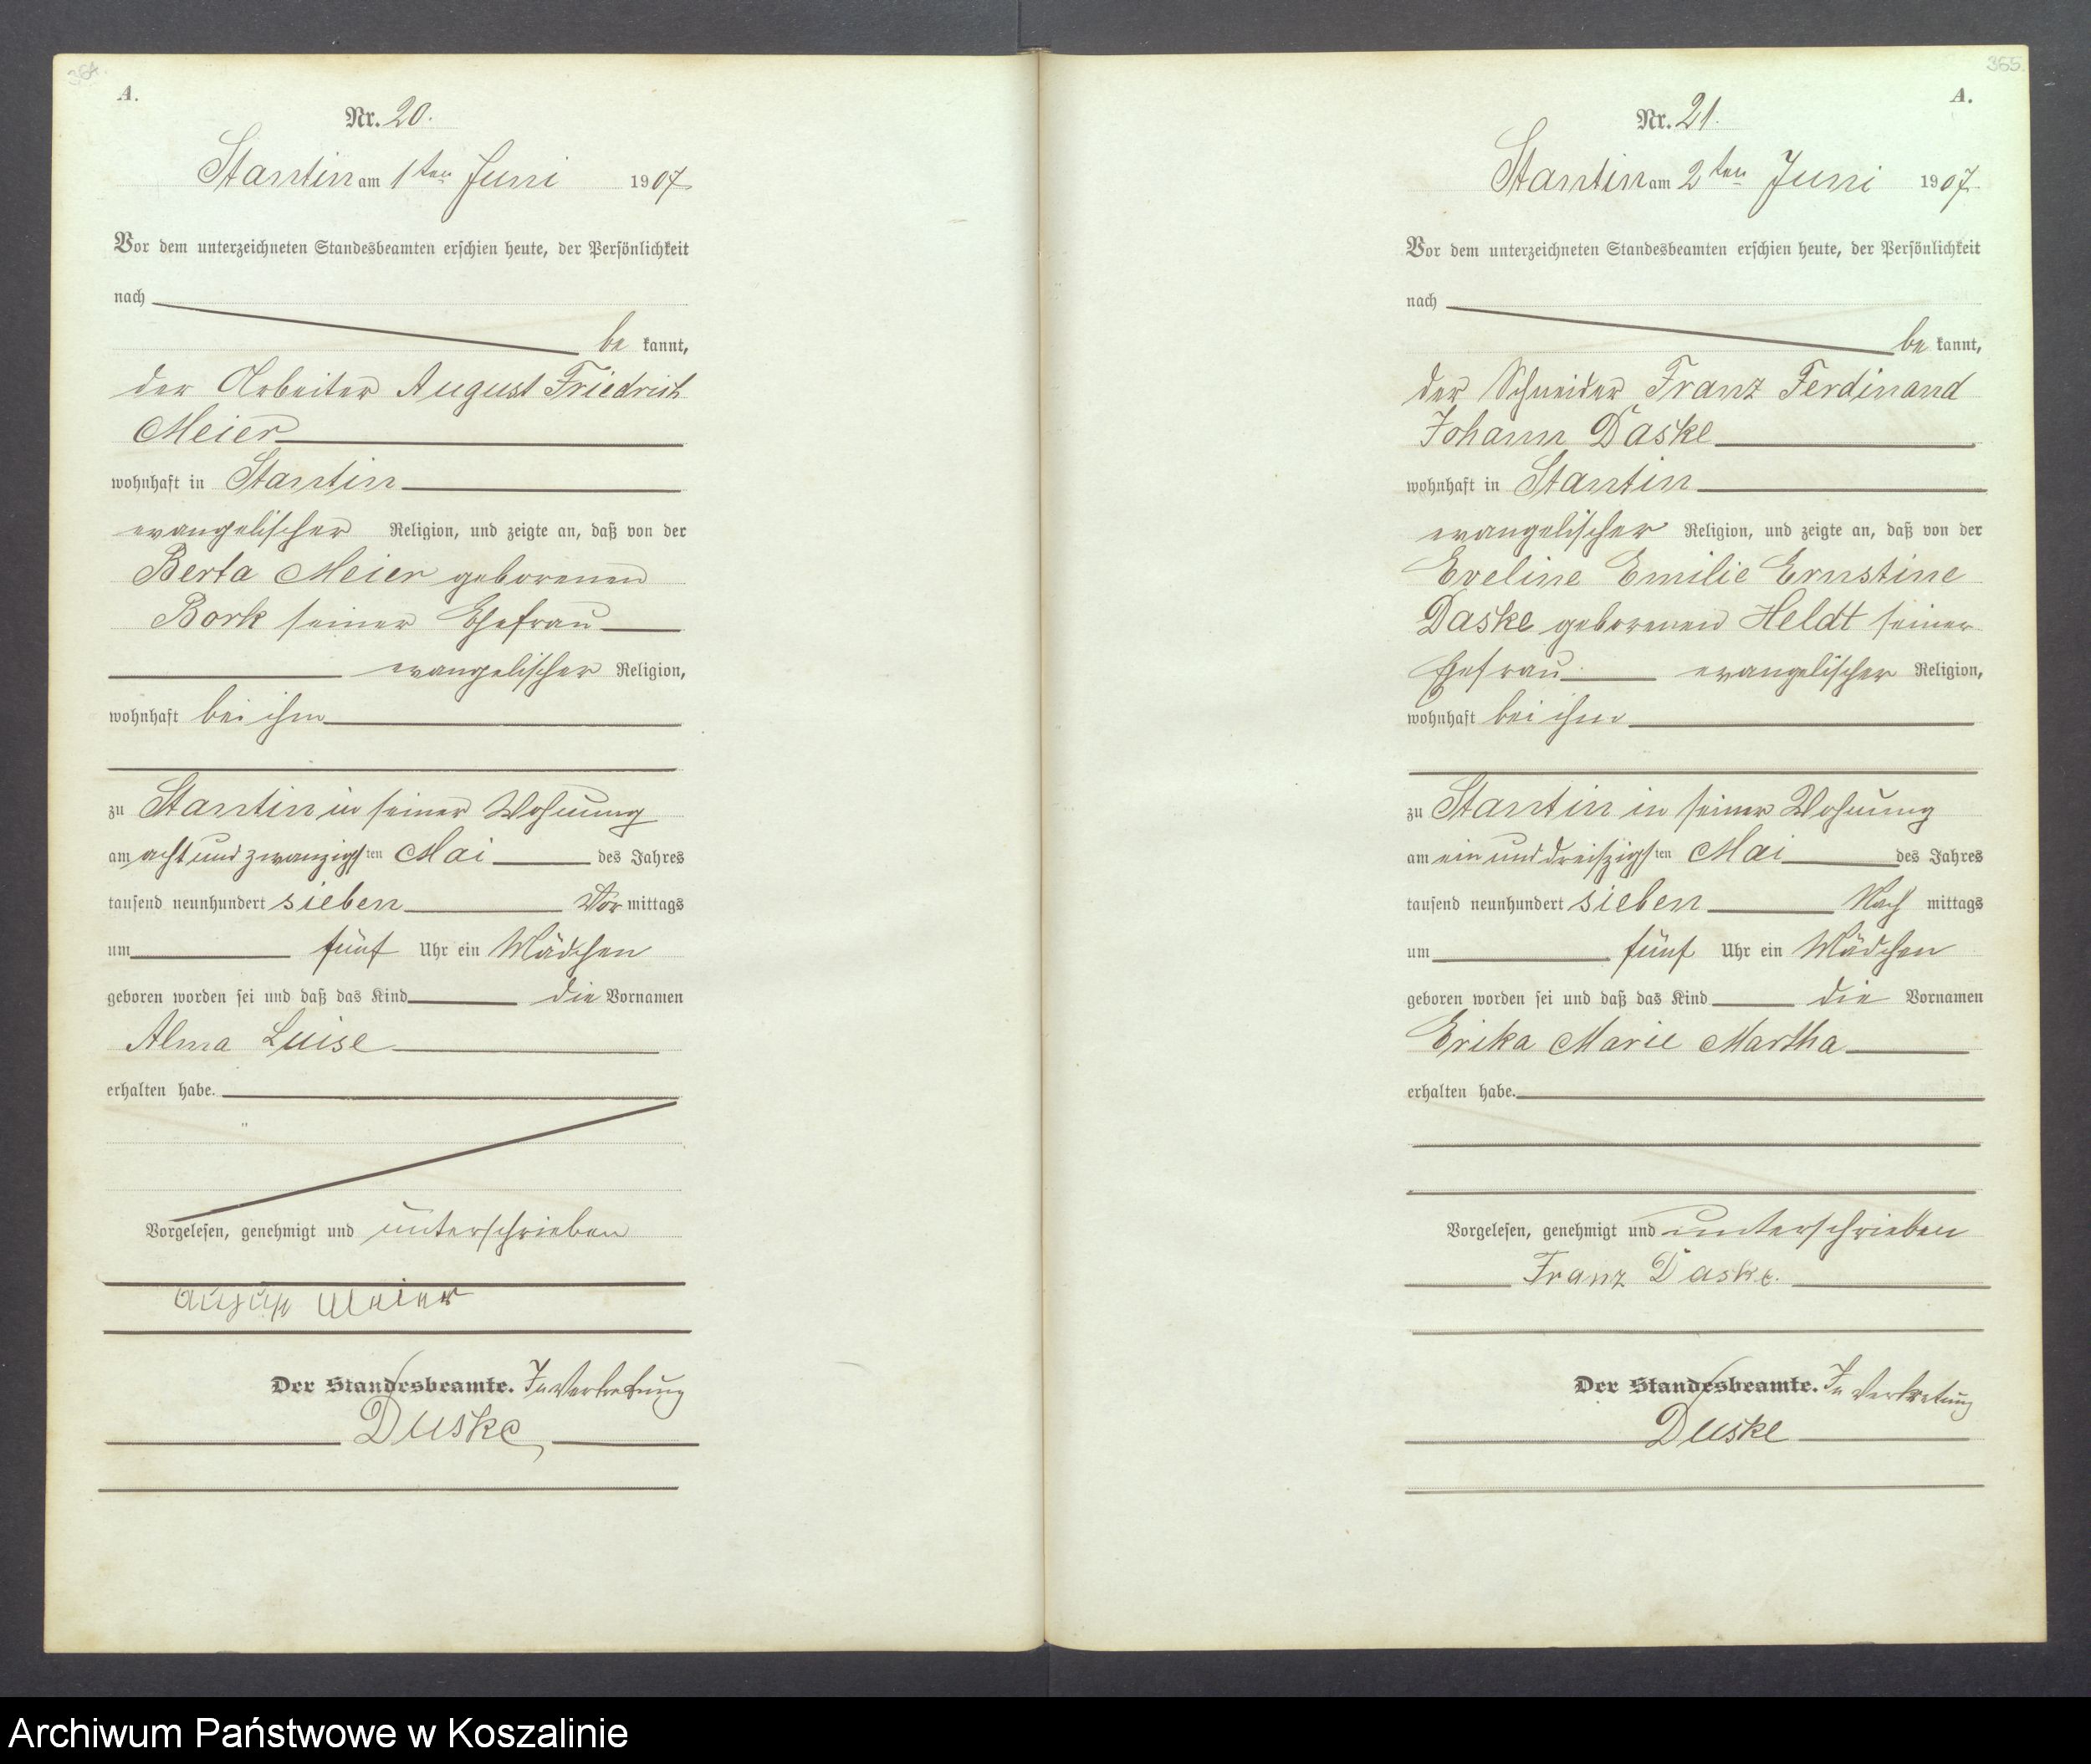 364.
A.
Nr. 20.
Stantin am 1ten Juni 1907
Vor dem unterzeichneten Standesbeamten erschien heute, der Persönlichkeit
nach
be kannt,
der Arbeiter August Friedrich
Meier
wohnhaft in Stantin
evangelischer Religion, und zeigte an, daß von der
Berta Meier geborenen
Bork seiner Ehefrau
evangelischer Religion,
wohnhaft bei ihm
zu Stantin in seiner Wohnung
am acht und zwanzigsten Mai des Jahres
tausend neunhundert sieben Vor mittags
um fünf Uhr ein Mädchen
geboren worden sei und daß das Kind die Vornamen
Alma Luise
erhalten habe.
Vorgelesen, genehmigt und unterschrieben
August Meier
Der Standesbeamte. In Vertretung
Duske
365.
A.
Nr. 21.
Stantin am 2ten Juni 1907.
Vor dem unterzeichneten Standesbeamten erschien heute, der Persönlichkeit
nach
be kannt,
der Schneider Franz Ferdinand
Johann Daske
wohnhaft in Stantin
evangelischer Religion, und zeigte an, daß von der
Eveline Emilie Ernstine
Daske geborenen Heldt seiner
Ehefrau evangelischer Religion,
wohnhaft bei ihm
zu Stantin in seiner Wohnung
am ein und dreiszigsten Mai des Jahres
tausend neunhundert sieben Nach mittags
um fünf Uhr ein Mädchen
geboren worden sei und daß das Kind die Vornamen
Erika Marie Martha
erhalten habe.
Vorgelesen, genehmigt und unterschrieben
Franz Daske.
Der Standesbeamte. In Vertretung
Duske
Archiwum Państwowe w Koszalinie